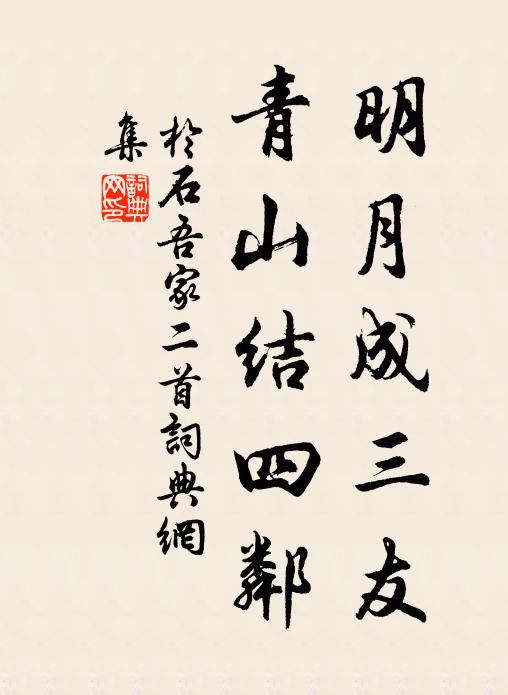 明月成三友
青山结四鄰
於石吾家二首詞典網
集
詞典
网印